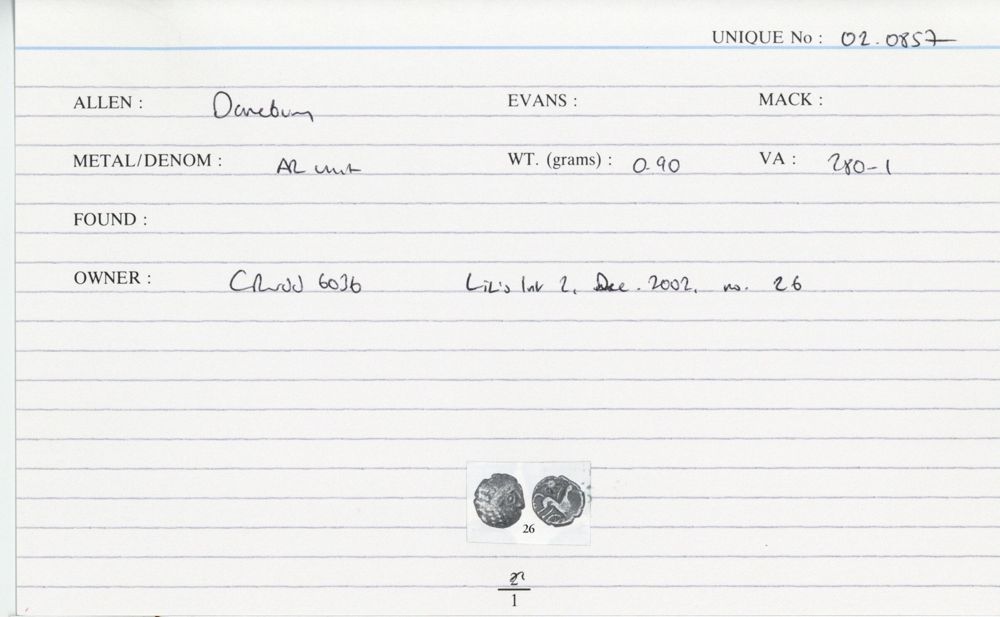 UNIQUE No : 02.0857
ALLEN : Danebury EVANS : MACK :
METAL/DENOM : AR unit WT. (grams) : 0.90 VA : 280-1
FOUND :
OWNER : CRudd 6036 Liz's List 2, Dec. 2002, no. 26
26
2
1